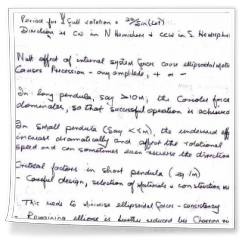 Period for 1 full rotation = 23.93/sin(Lat)
Direction is CW in N Hemisphere & CCW in S. Hemisphere
Nett effect of internal system forces cause ellipsoidal
Causes Precession - any amplitude, + or -
In long pendula, say >10m, the Coriolis force
dominates, so that successful operation is achieved
In small pendula (say <5m), the undesired
increase dramatically and affect the rotational
speed and can sometimes even reverse the direction
Critical factors in short pendula (eg 1m)
- Careful design, selection of materials & construction
- This needs to minimise ellipsoidal forces - consistency
- Remaining ellipse is further reduced by Charron